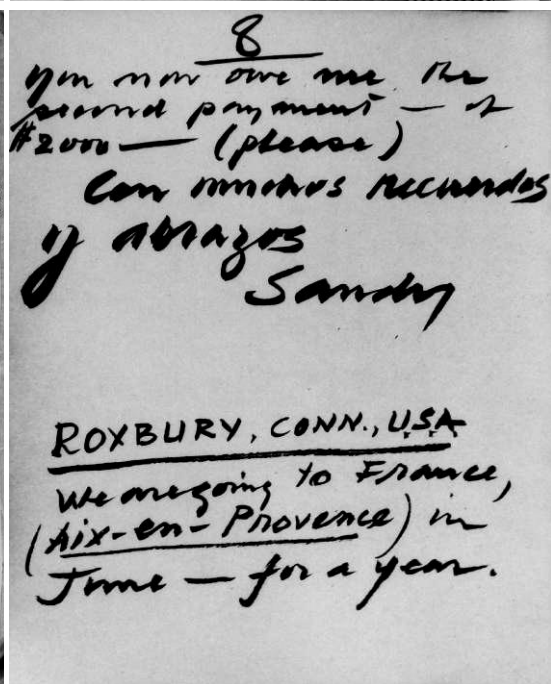 8
you now owe me the
second payment — of
$2000 — (please)
Con muchos recuerdos
y abrazos
Sandy
ROXBURY, CONN., U.S.A
We are going to France,
(Aix-en-Provence) in
June — for a year.